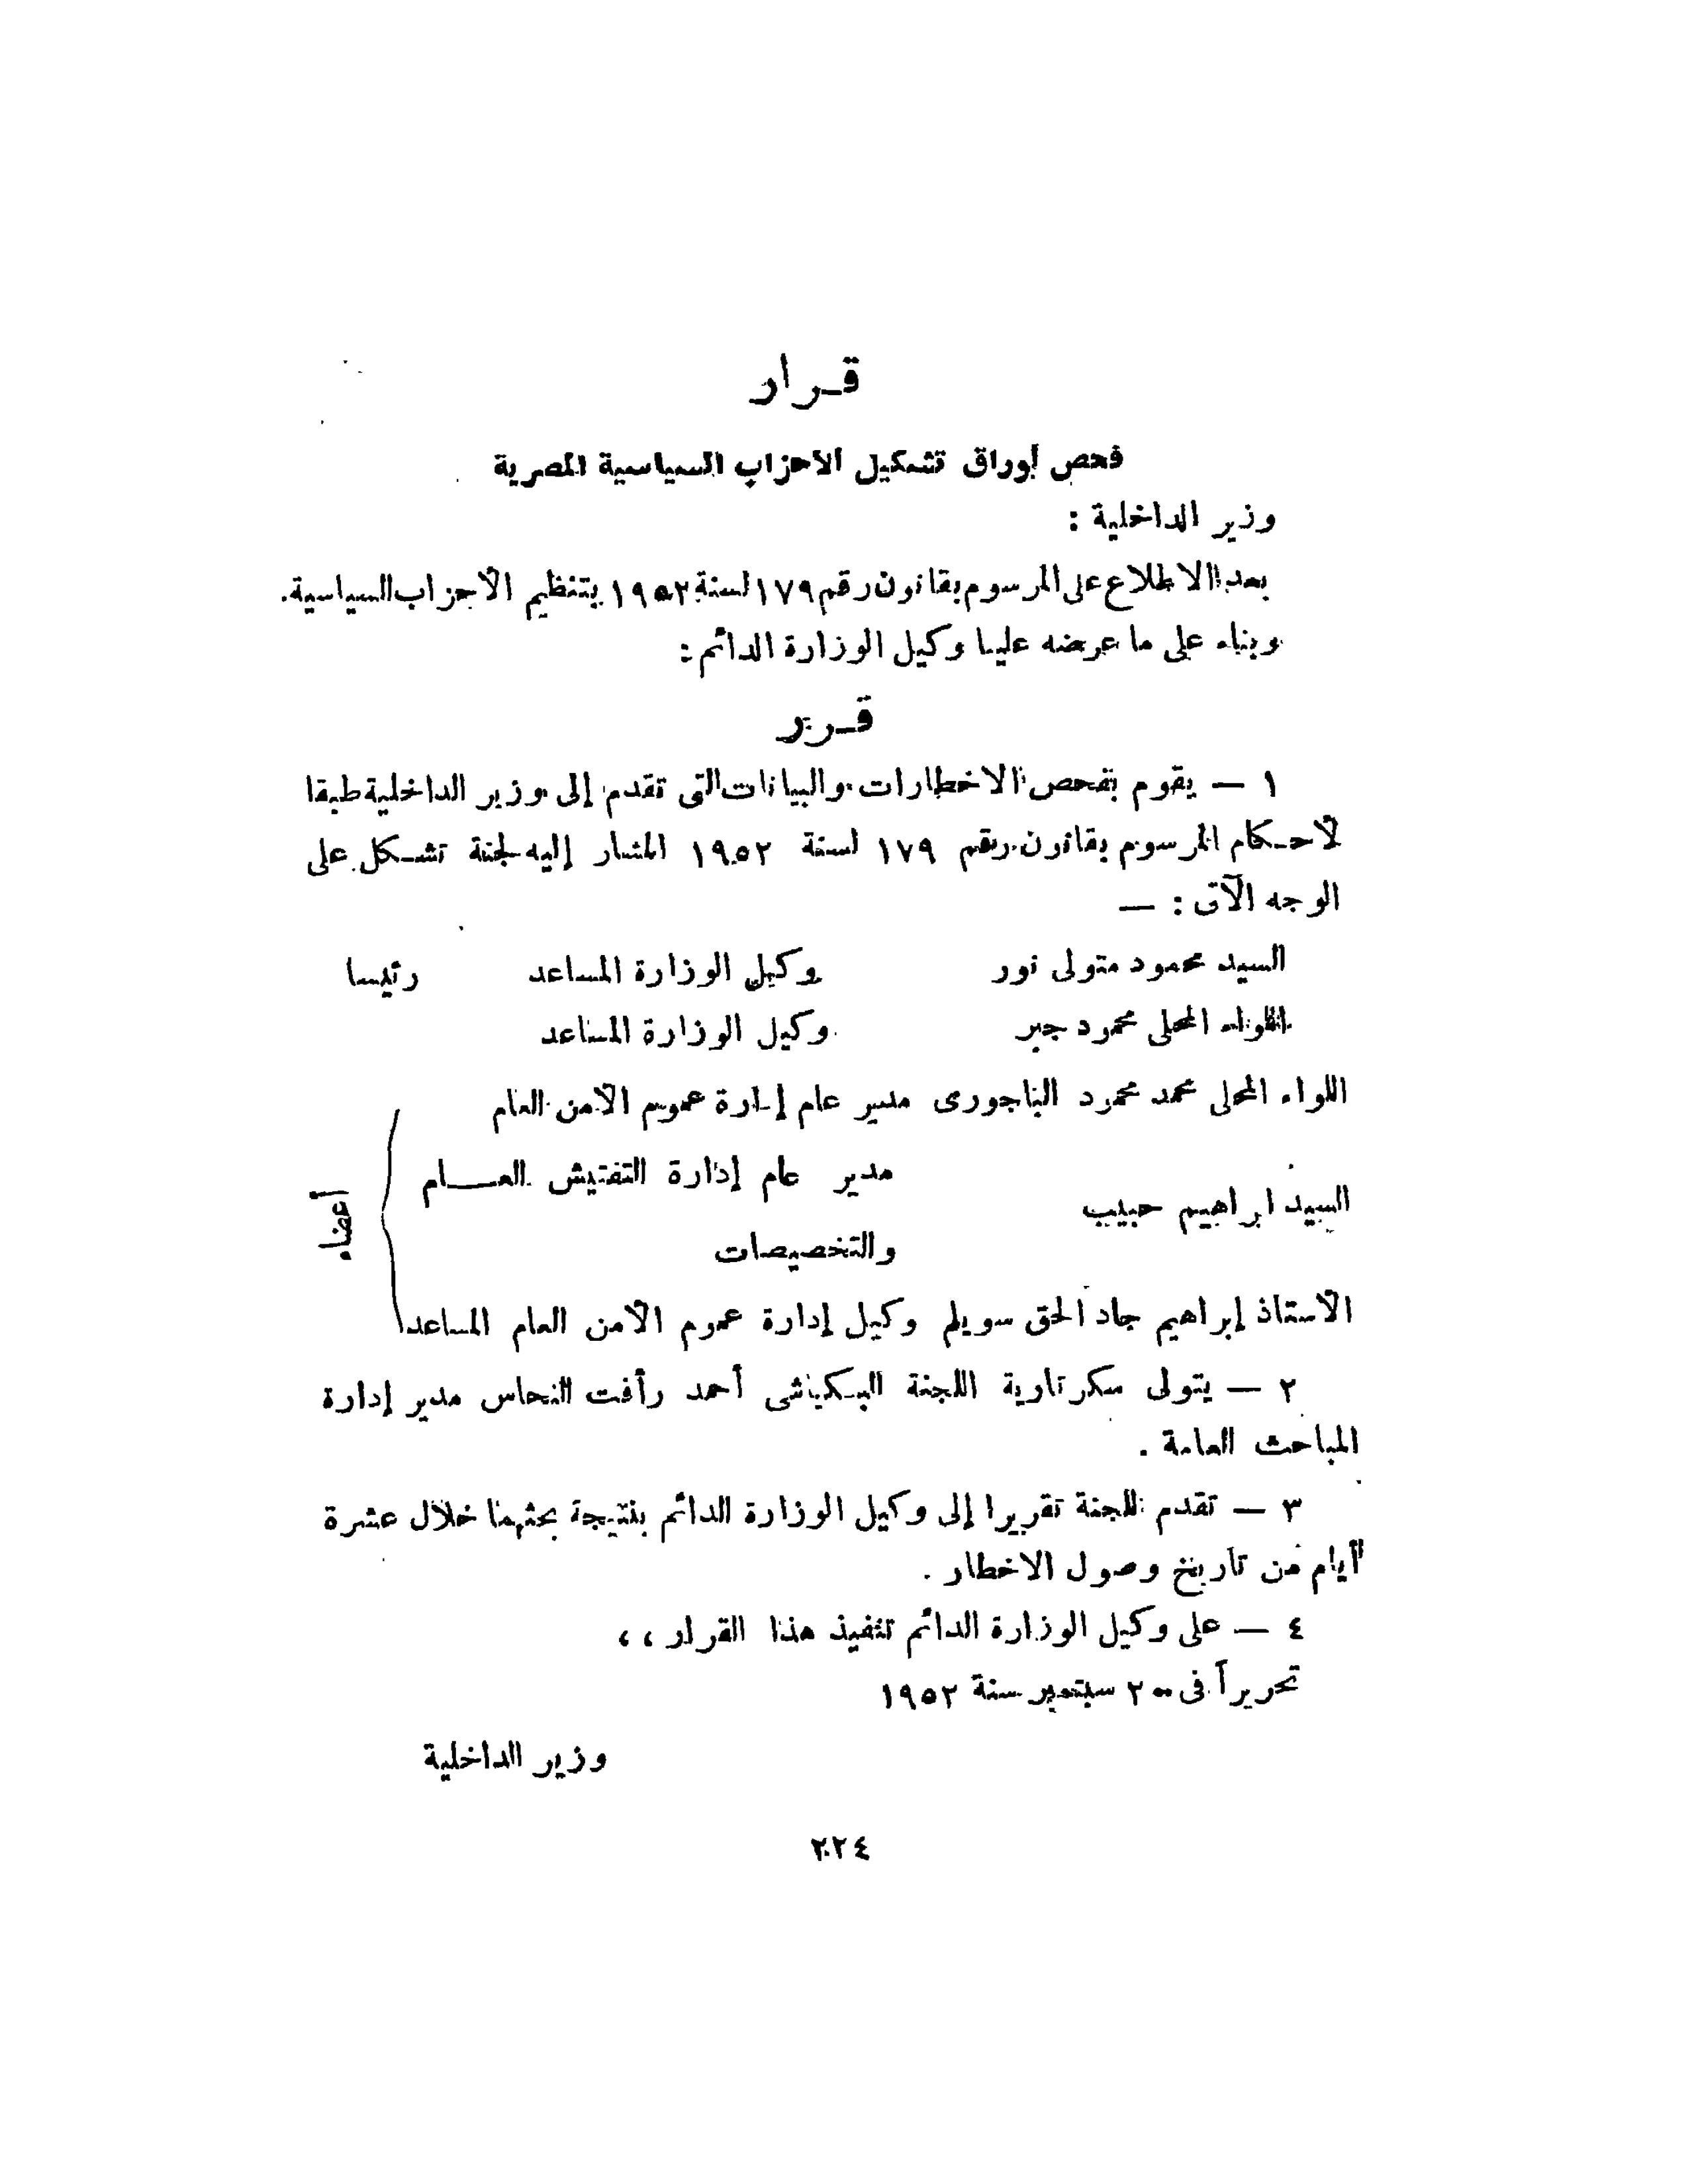 قـرار
فحص أوراق تشكيل الاحزاب السياسية المصرية
وزير الداخلية :
بعد الاطلاع على المرسوم بقانون رقم ١٧٩ لسنة ١٩٥٢ بتنظيم الأحزاب السياسية.
وبناء على ما عرضه علينا وكيل الوزارة الدائم :
قـرر
١ — يقوم بفحص الاخطارات والبيانات التى تقدم إلى وزير الداخلية طبقا
لأحـكام المرسوم بقانون رقم ١٧٩ لسنة ١٩٥٢ المشار إليه لجنة تشـكل على
الوجه الآتى : —
السيد محمود متولى نور وكيل الوزارة المساعد رئيسا
اللواء المحلى محمود جبر وكيل الوزارة المساعد
اللواء المحلى محمد محمود الباجورى مدير عام إدارة عموم الأمن العام
السيد ابراهيم حبيب مدير عام إدارة التفتيش العـــام
والتخصيصات
أعضاء
الأستاذ إبراهيم جاد الحق سويلم وكيل إدارة عموم الأمن العام المساعد
٢ — يتولى سكرتارية اللجنة البـكباشى أحمد رأفت النحاس مدير إدارة
المباحث العامة .
٣ — تقدم اللجنة تقريرا إلى وكيل الوزارة الدائم بنتيجة بحثها خلال عشرة
أيام من تاريخ وصول الاخطار .
٤ — على وكيل الوزارة الدائم تنفيذ هذا القرار ،،
تحريراً فى سبتمبر سنة ١٩٥٢
وزير الداخلية
٢٢٤